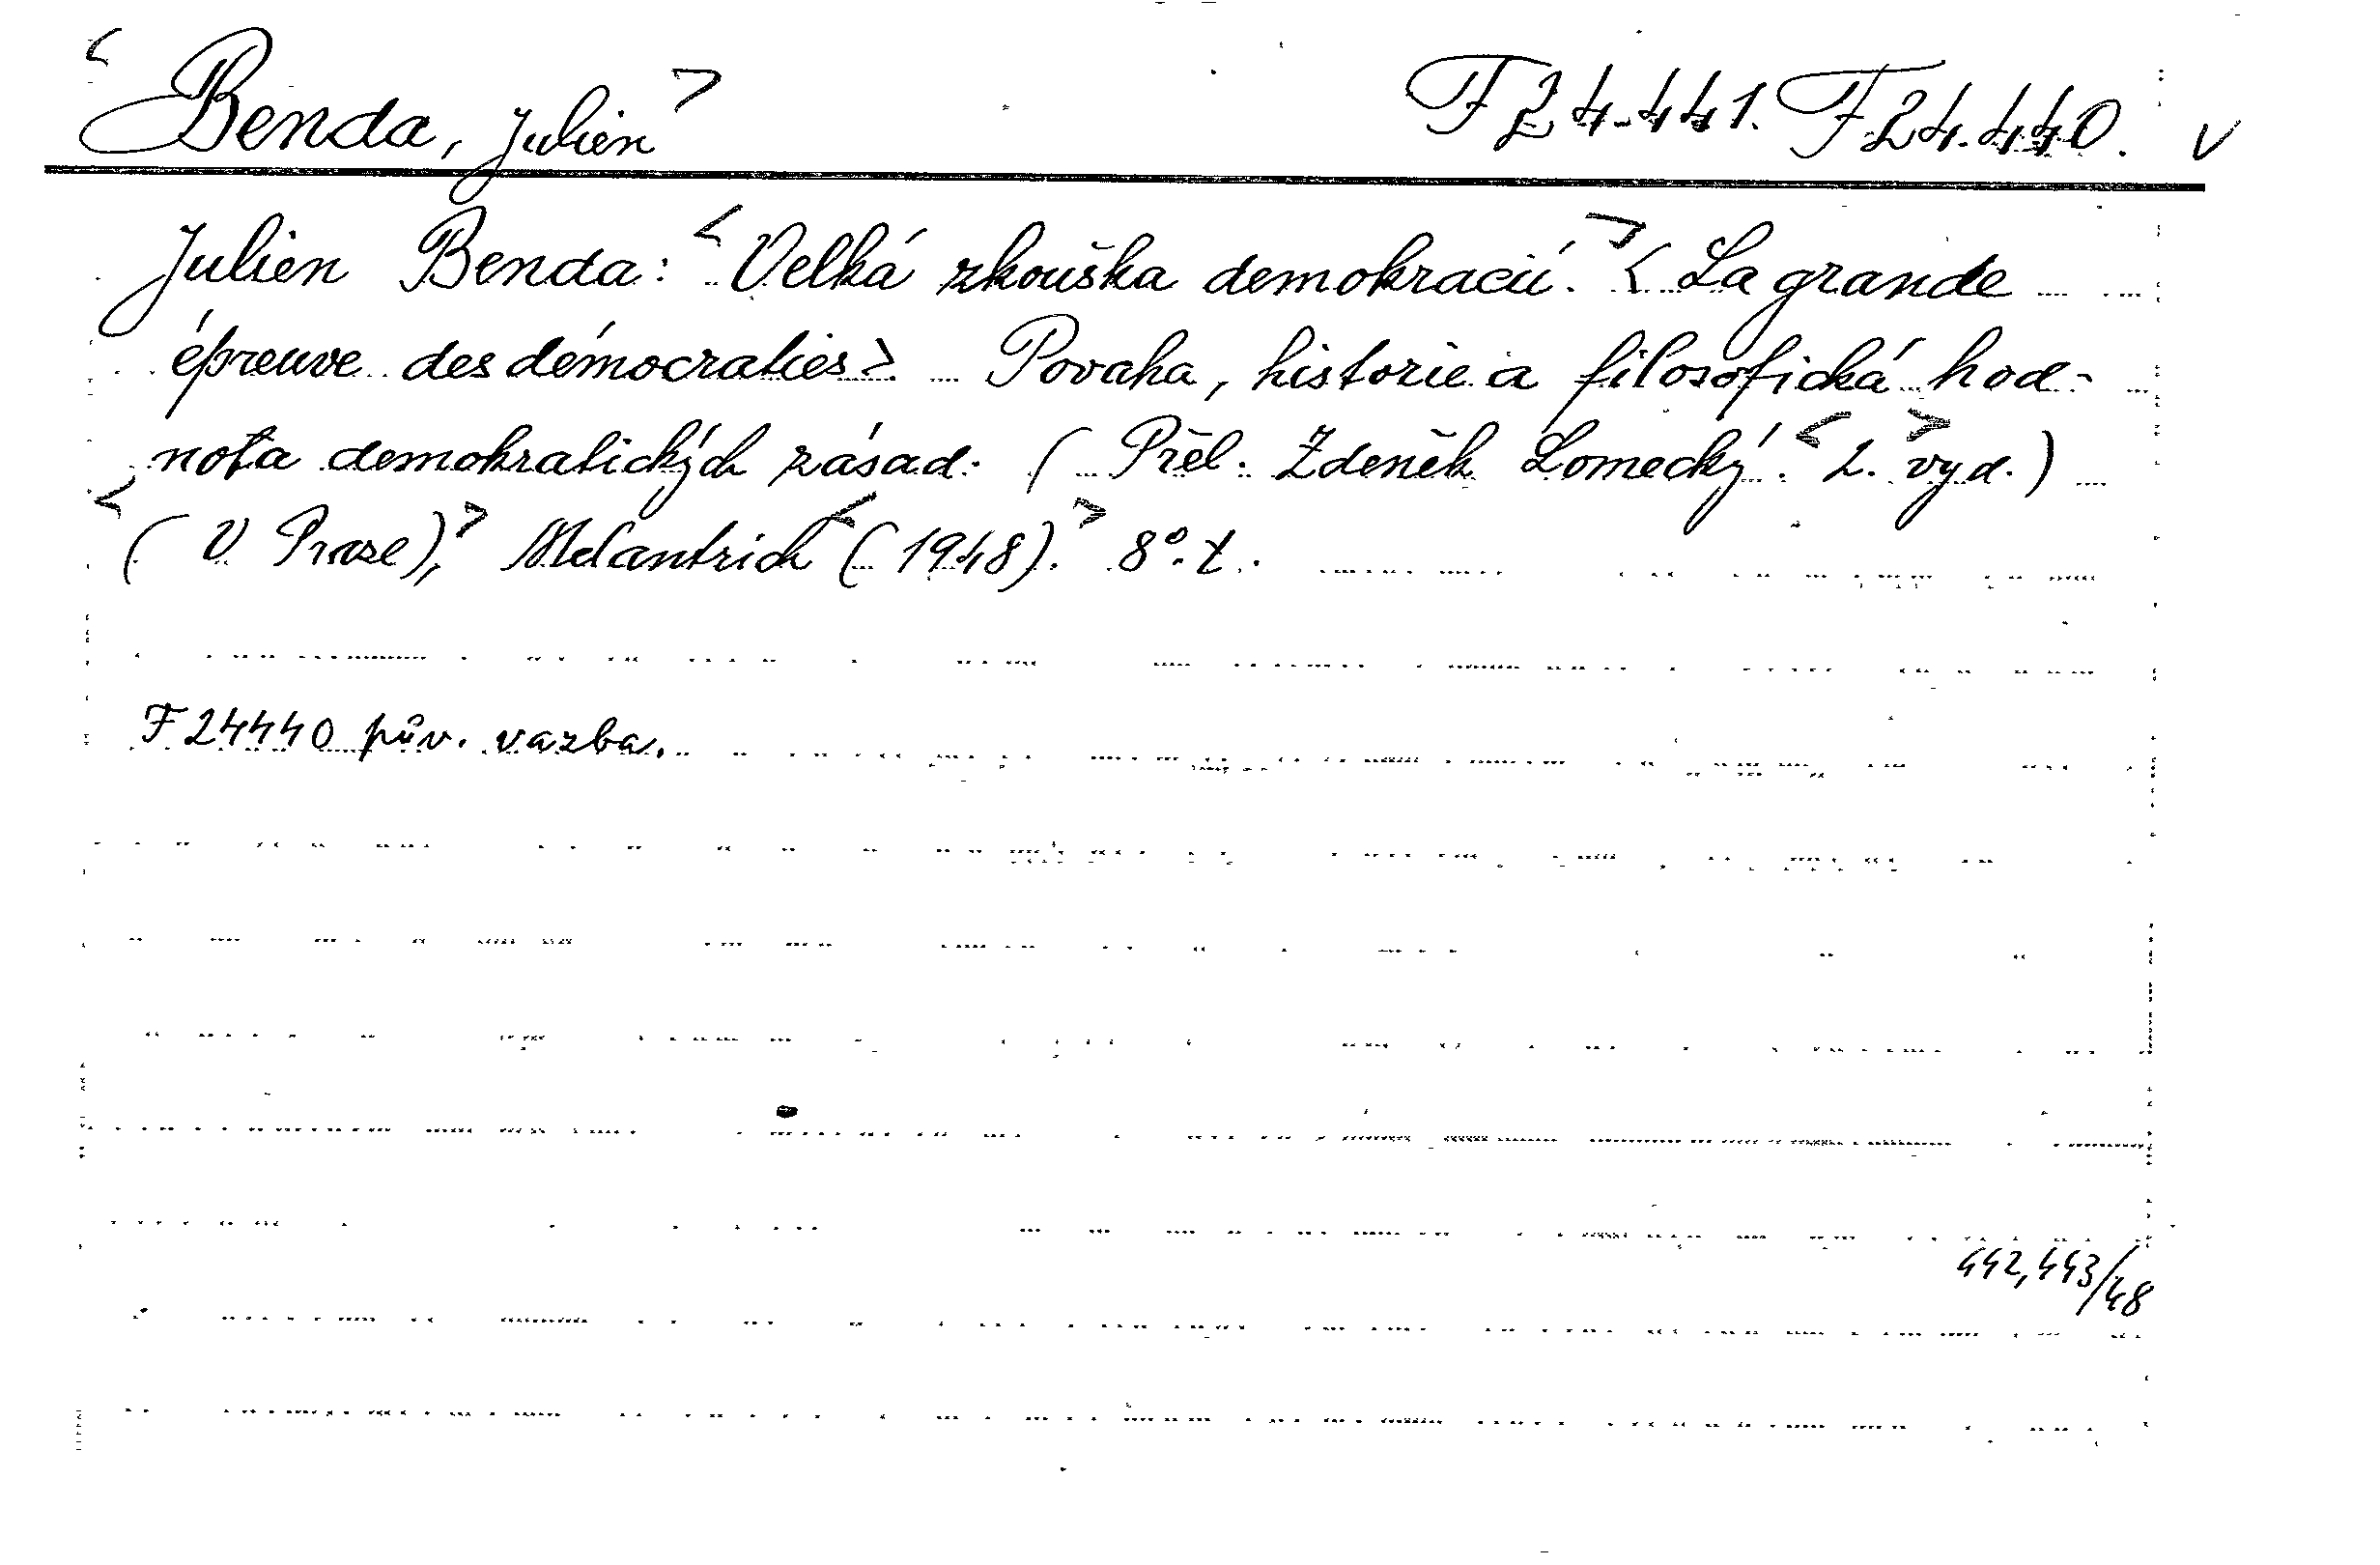 <Benda, Julien> F 24.441. F 24.440. v
Julien Benda: <Velká zkouška demokracií.> <La grande
épreuve des démocraties> Povaha, historie a filosofická hod-
nota demokratických zásad. (Přel. Zdeněk Lomecký. <1.> vyd.)
<(V Praze),> Melantrich <(1948).> 8°. t.
F 24440 pův. vazba.
442,443/48